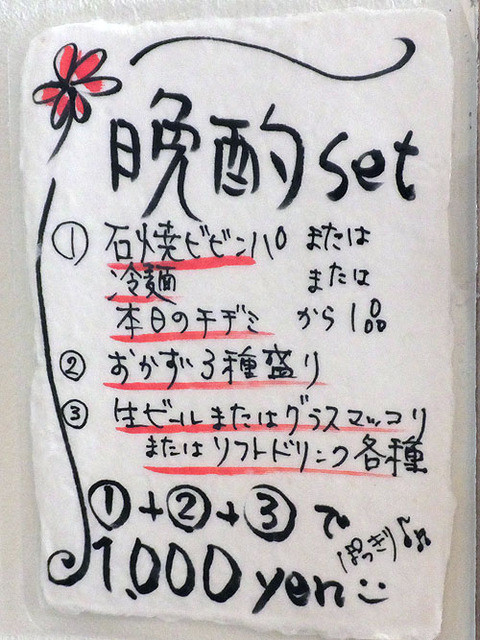 晩酌set
① 石焼ビビンパ または
冷麺 または
本日のチヂミ から1品
② おかず3種盛り
③ 生ビールまたはグラスマッコリ
またはソフトドリンク各種
①+②+③で
1,000yen ぽっきり♪♫